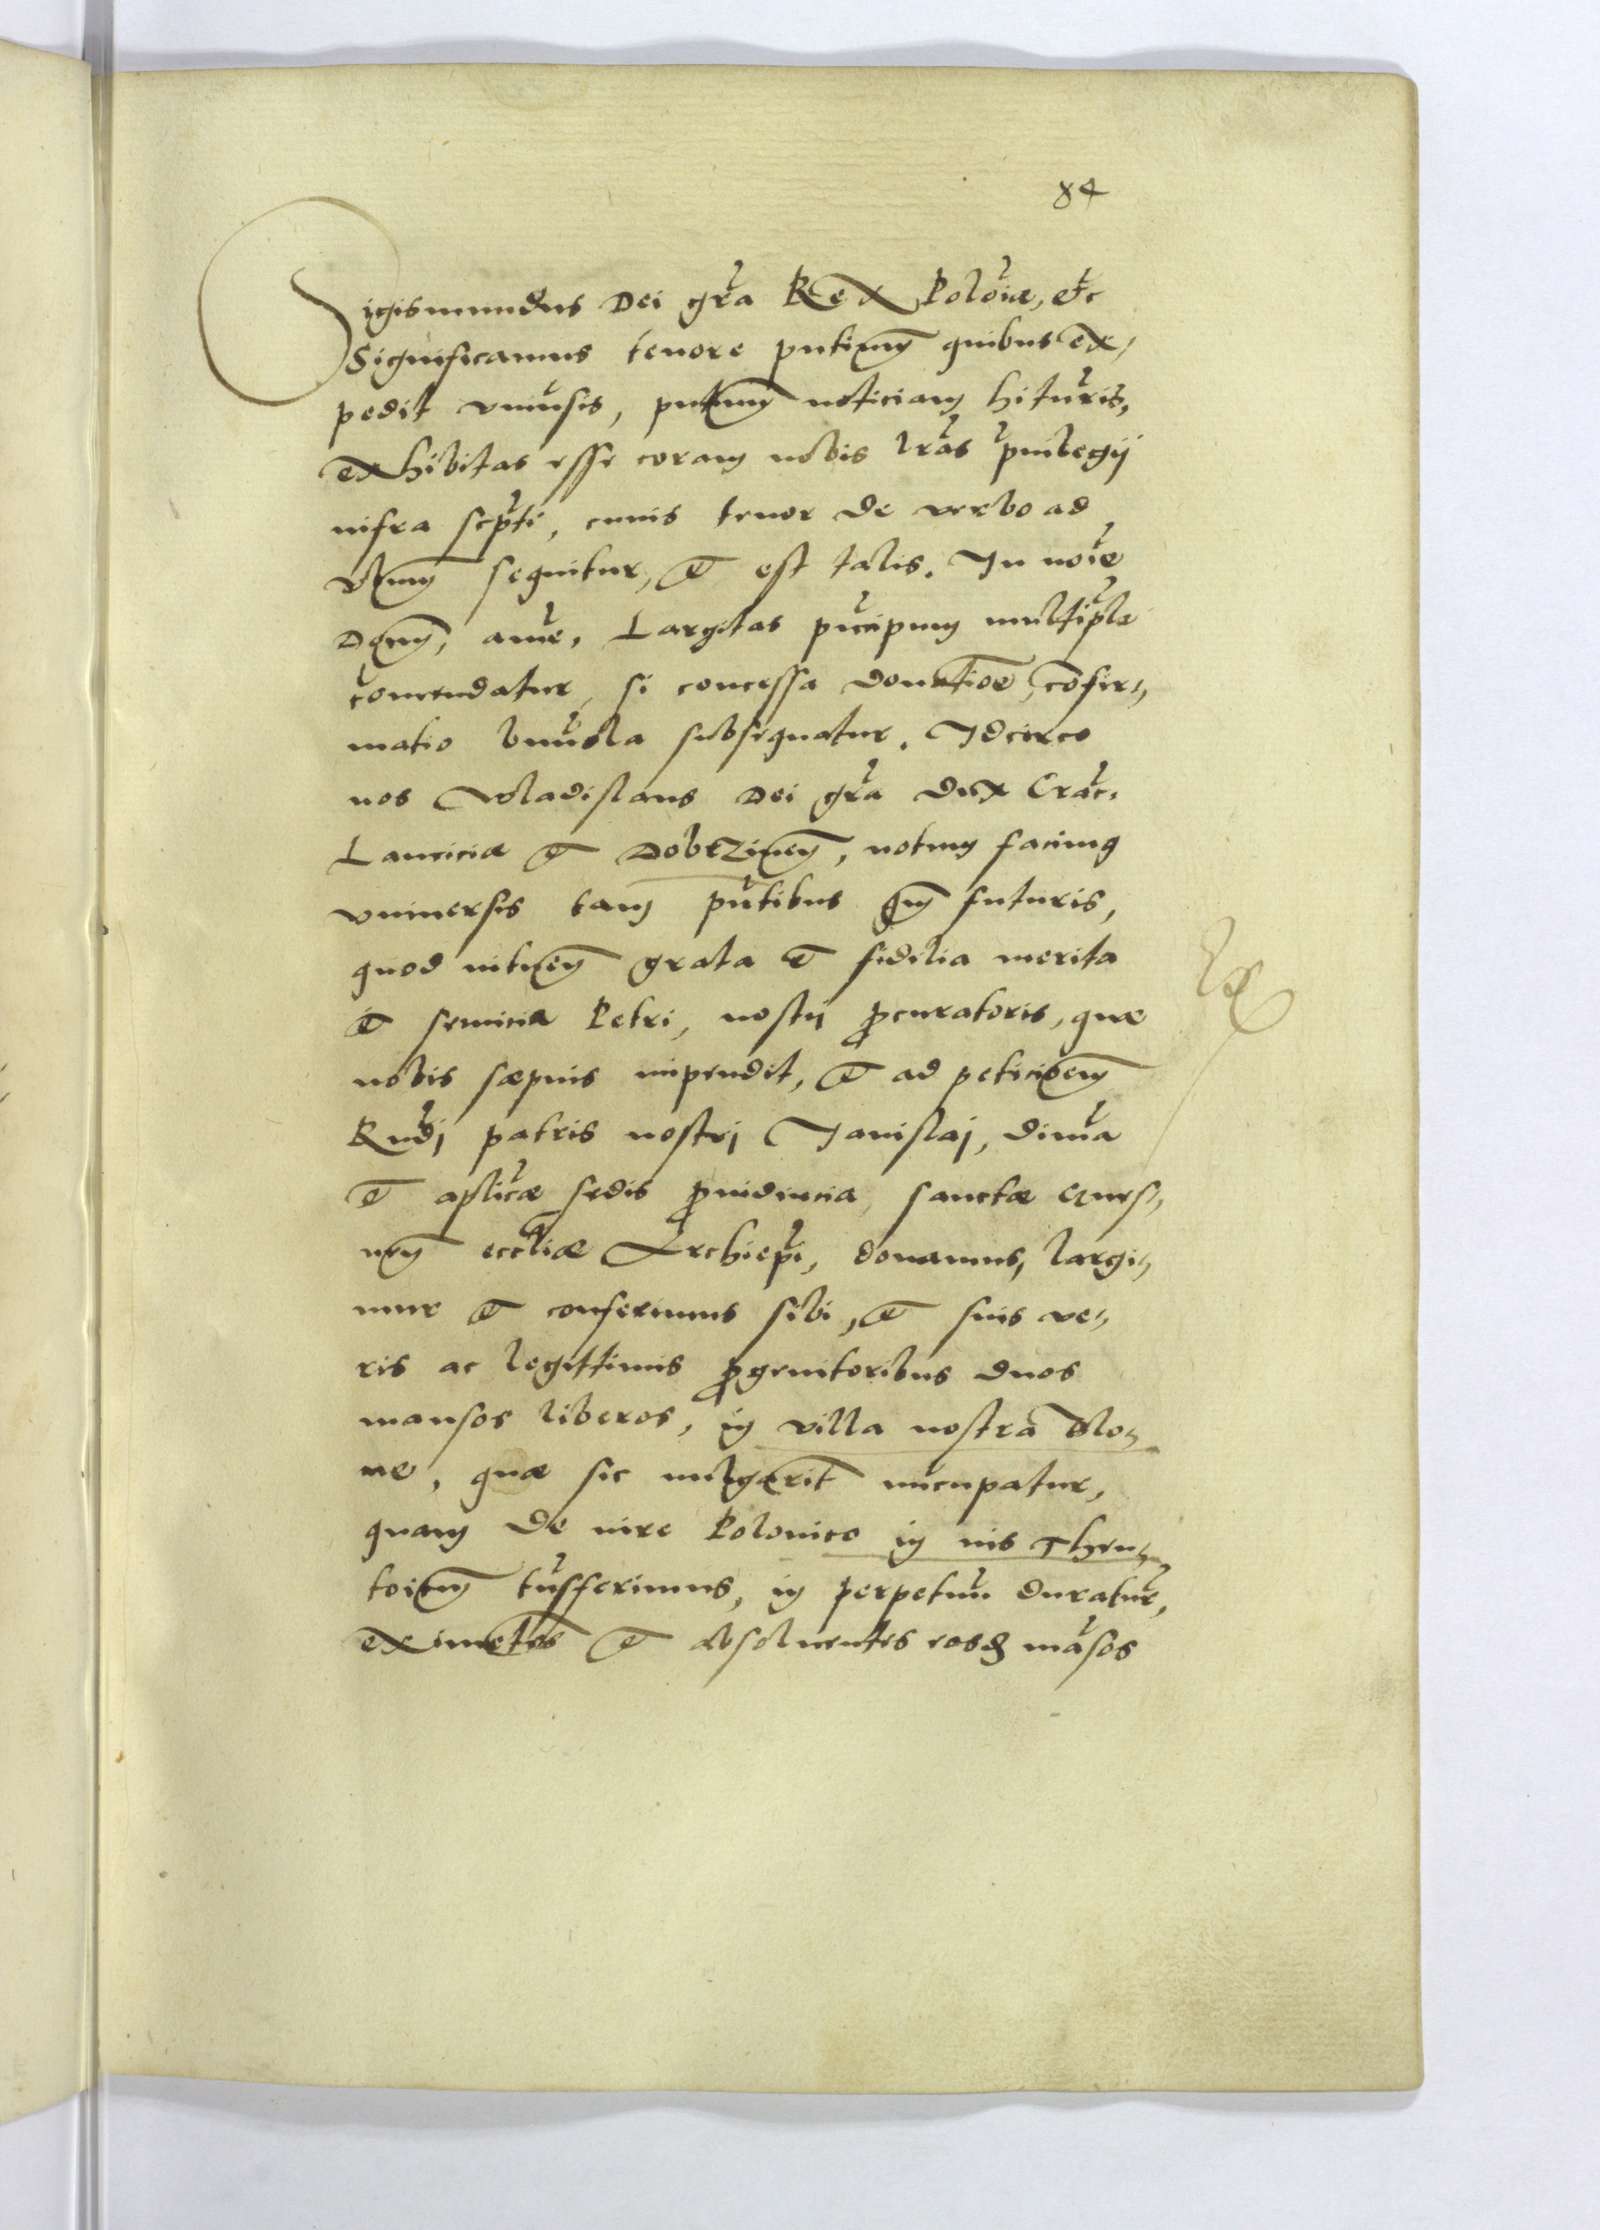 84
Sigismundus Dei gra Rex Polonie, etc
Significamus tenore pntium quibus ex,
pedit uniusis, pntium noticiam hituris,
exhibitas esse coram nobis lras priuilegij
infra scpti, cuius tenor de verbo ad
verbum sequitur, et est talis. In noie
Domini, ame, Largitas pncipum multiple
comendatur, si concessa donatioe, cofir,,
matio beniuola subsequatur. Idcirco
nos Wladislaus Dei gra dux Crac.
Lanciciæ et Dobrzinen, notum facimus
uniuersis tam pntibus quam futuris,
quod intuen grata et fidelia merita
et seruicia Petri, nostri procuratoris, quæ
nobis sæpius impendit, et ad peticionem
Rndi patris nostri Janislai, diuina
et aplicæ sedis prouidencia, sanctæ Gnes,,
nen eccliæ Archiepi, donamus, largi,,
mur et conferimus sibi, et suis ve,,
ris ac legittimis progenitoribus duos
mansos liberos, in villa nostra Blo,,
nie, quæ sic uulgarit nucupatur,
quam de iure Polonico in ius Theu,,
toicum tusferimus, in perpetuu duratur,
eximetes et absoluentes eosdem masos